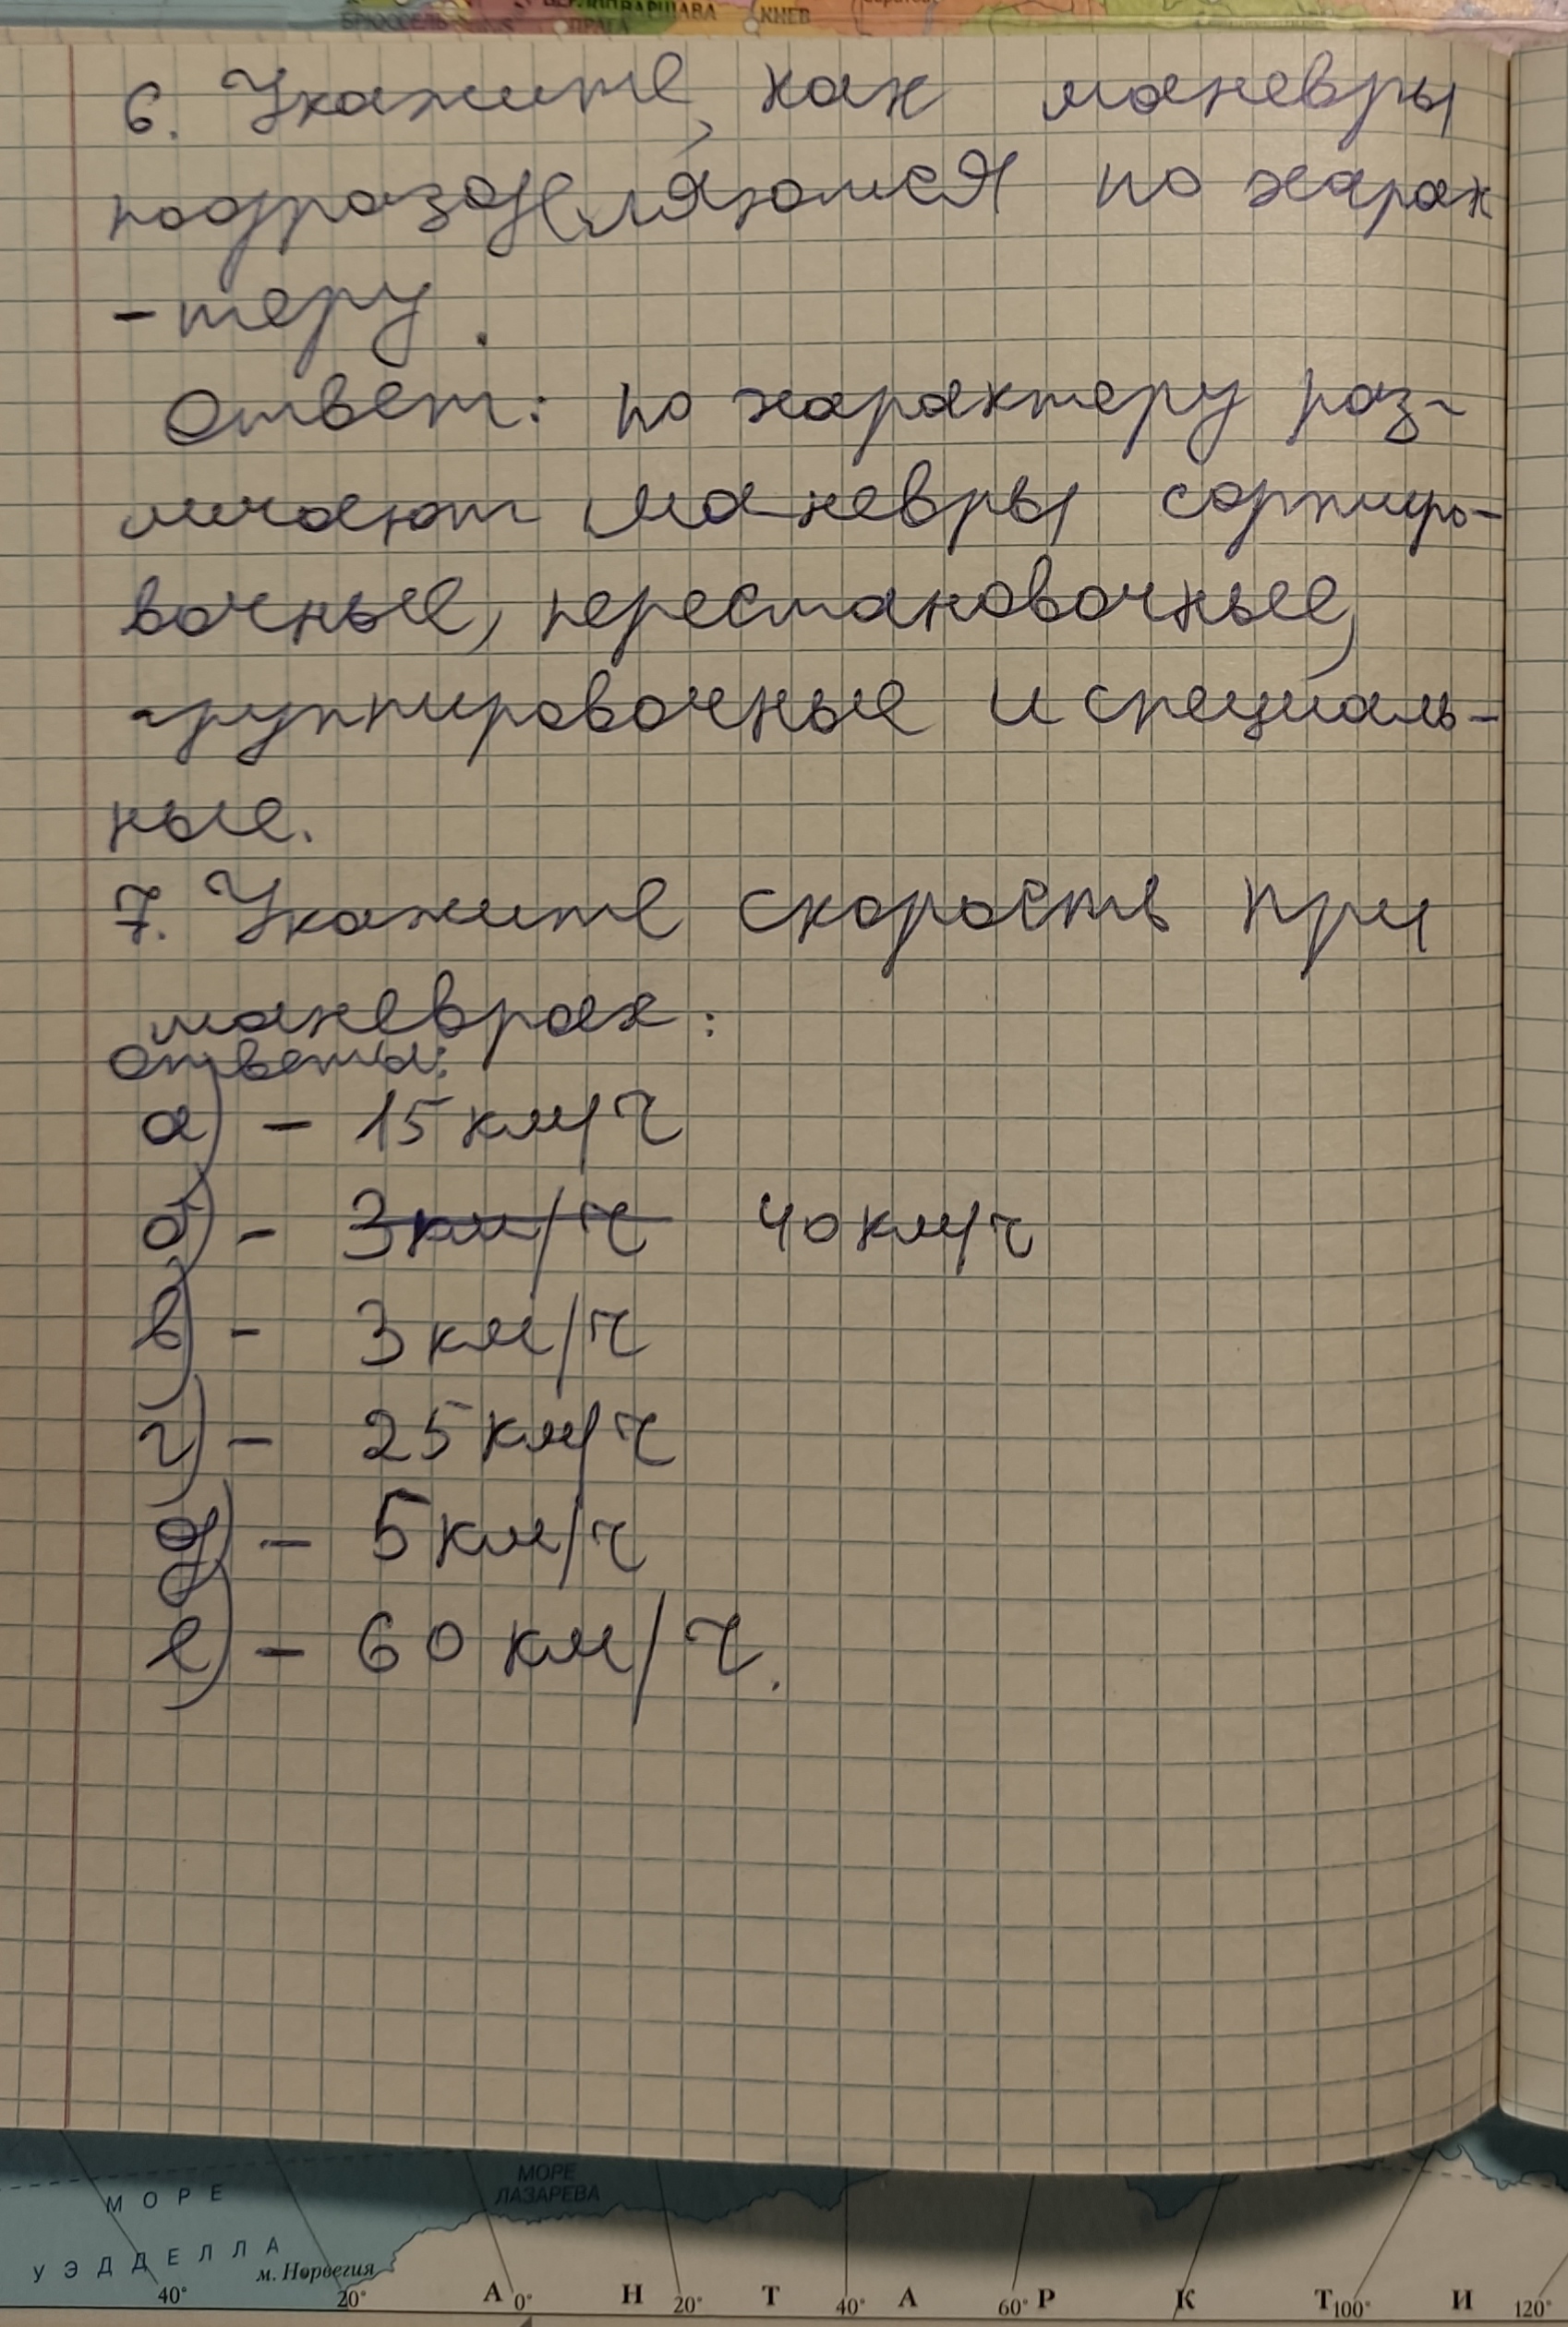 БРЮССЕЛЬ ПРАГА ВАРШАВА КИЕВ
6. Укажите, как маневры
подразделяются по харак
-теру.
Ответ: по характеру раз-
личают маневры сортиро-
вочные, перестановочные,
группировочные и специаль-
ные.
7. Укажите скорость при
маневрах:
Ответы:
а) - 15 км/ч
б) - 3 км/ч 40 км/ч
в) - 3 км/ч
г) - 25 км/ч
д) - 5 км/ч
е) - 60 км/ч.
МОРЕ
ЛАЗАРЕВА
МОРЕ
УЭДДЕЛЛА
м. Норвегия
40° 20° А 0° Н 20° Т 40° А 60° Р К Т 100° И 120°